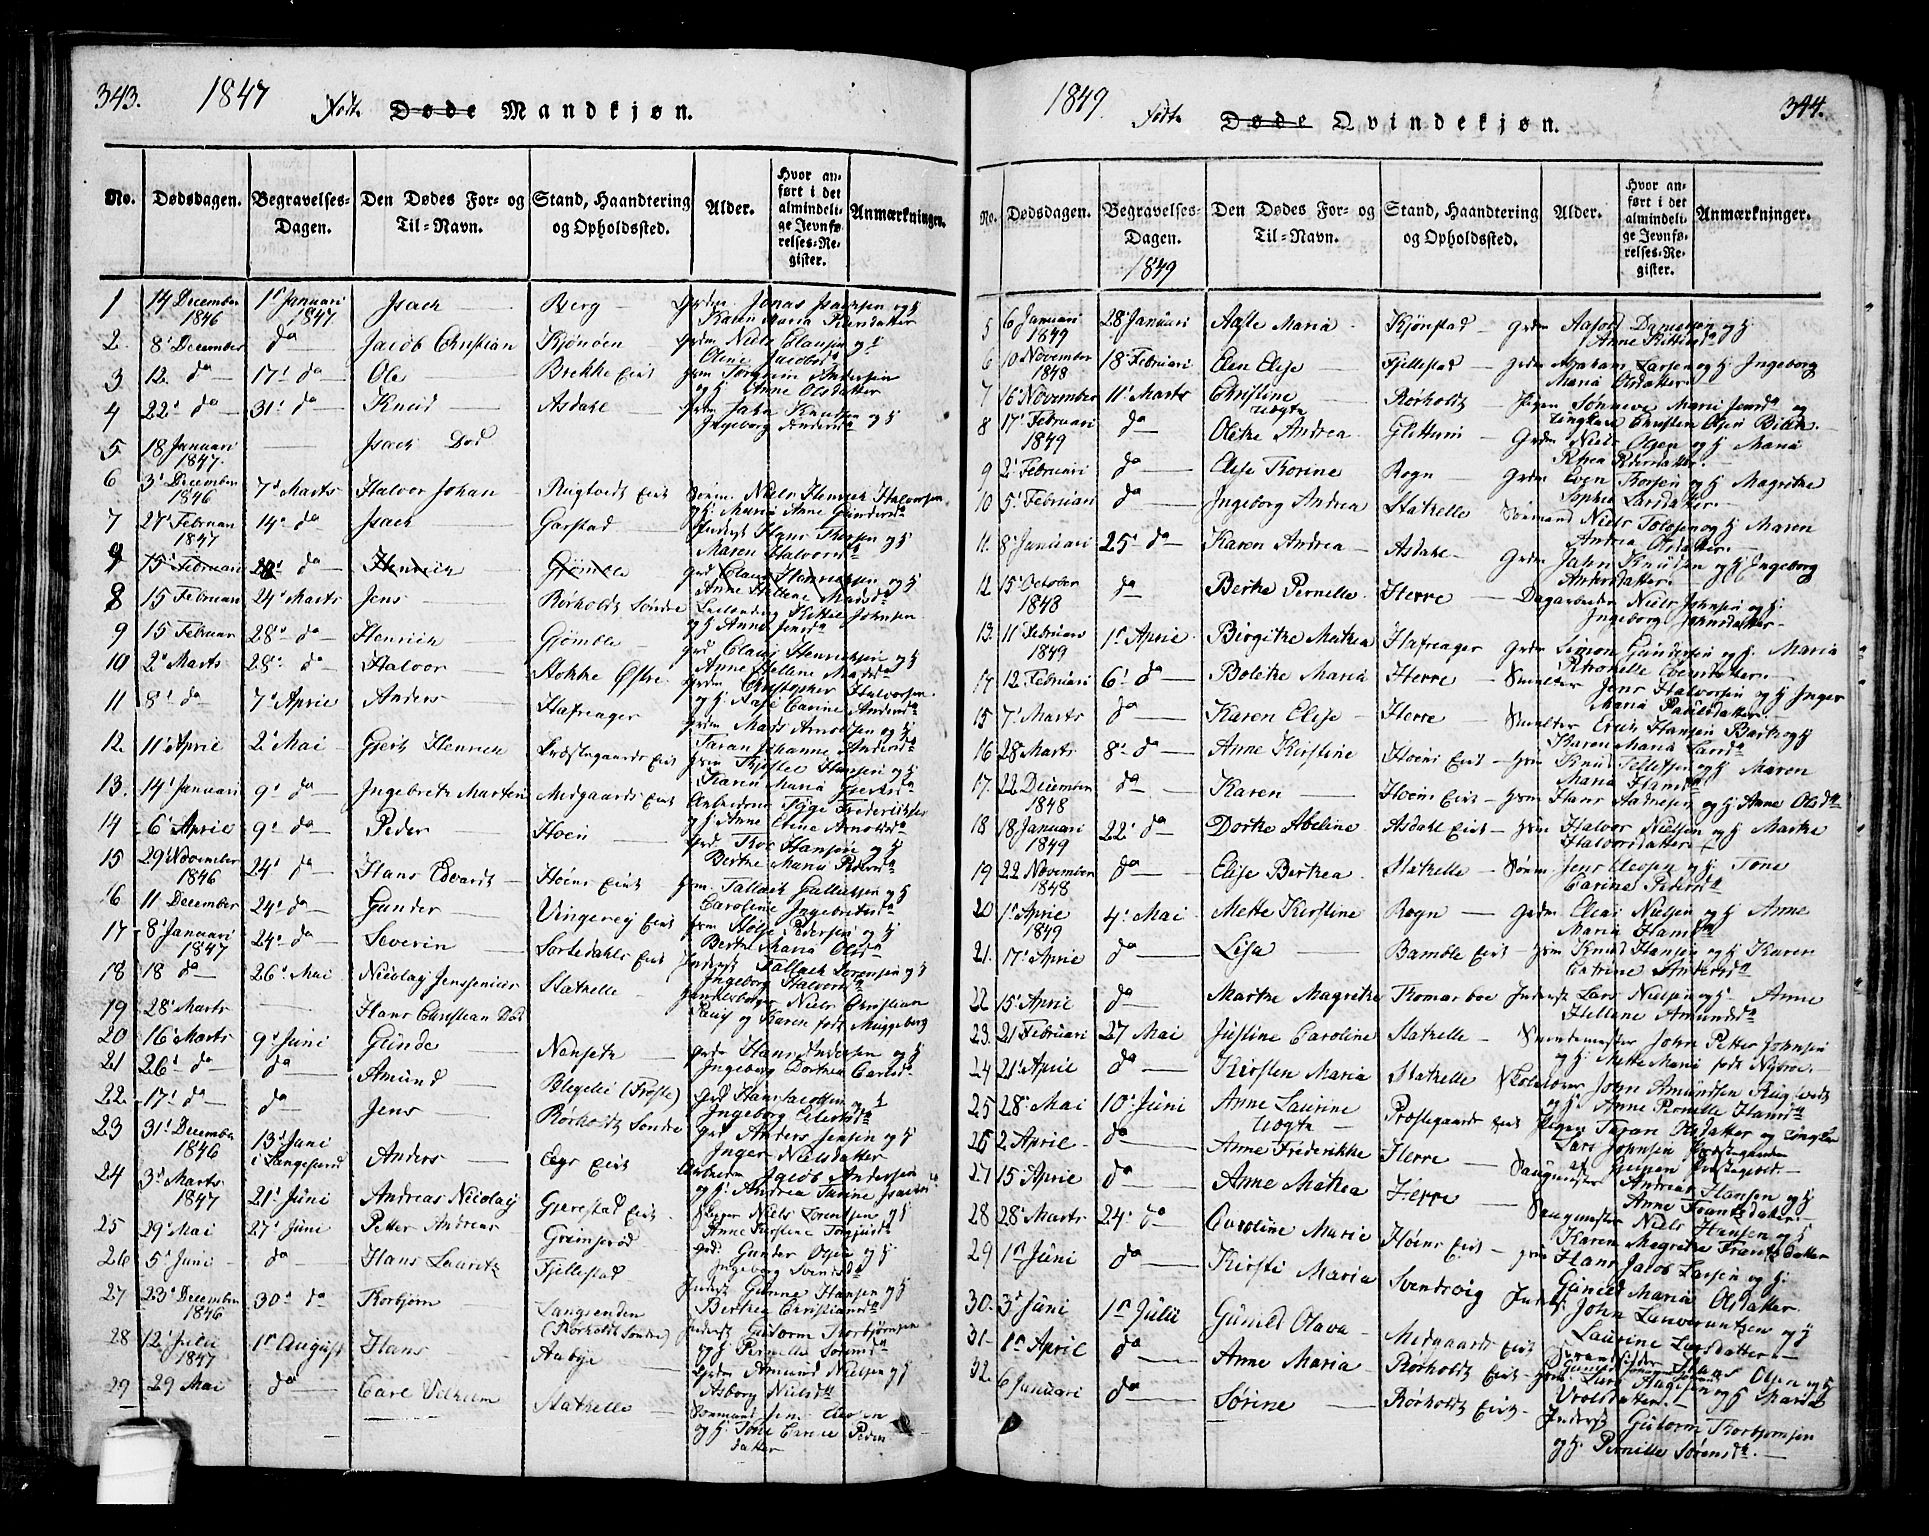 343. 1847 Født Døde Mandkjøn.
No. Dødsdagen. Begravelses-Dagen. Den Dødes For- og Til-Navn. Stand, Haandtering og Opholdssted. Alder. Hvor anført i det almindelige Jevnførelses-Register. Anmærkninger.
1 14 December 1846 1d Januari 1847 Isach Berg Grdm. Jonas Isachsen og h Karen Maria Pedersdatter
2. 8d December da Jacob Christian Kjønøen Grdm Niels Clausen og h Oline Jacobsda
3 12. da 17d da Ole Brekke Eiet og h Anne Olsdatter
4 22d da 31d da Knud Asdahl Grdm John Knudsen og h Ingeborg Andersda
5 18 Januari 1847. Isach Død
6 3d December 1846 7d Marts Halvor Johan Rugtvedt Eiet Sørm. Niels Henrich Halvorsen og h. Maria Anne Gundersda
7 27d Februari 1847 14d da Isach Garstad Inderst Hans Thorsen og h Maren Halvorsda
9 15 Februari 28d da Henrich Gjømle Grd Claus Henrichsen og h Anne Hellene Madsda
8 15 Februari 24d Marts Jens Rørholdt Søndre Leilending Kittel Johnsen og h Anne Jensda
9 15 Februari 28d da Henrich Gjømle Grd Claus Henrichsen og h Anne Hellene Madsda
10 2d Marts 28d da Halvor Stokke Østre Grdm Christopher Halvorsen og h Aase Carine Andersda
11 8d da 7d April Anders Hafreager Grdm Mads Arnoldsen og h Taran Johanne Andersda
12. 11d April 2d Mai Gjert Henrich Præstegaards Eiet Hsm Kjøstel Hansen og h Karen Maria Gjertsda
13. 14d Januari 9d da Ingebreth Marten Medgaards Eiet og h Anne Eline Arnoldsda
14 6d April 9d da Peder Hoen Grd Thor Hansen og h Berthe Maria Pedersda
15 29d November 1846 24d da Hans Edvardt Hoens Eiet Hsm. Tallach Gullichsen og h Caroline Ingebretsda
16 11 December 24d da Gunder Vingereg Eiet Hsm Stole Pedersen og h Berthe Maria Olsda
17 8d Januari 1847 24d da Severin Sortedahls Eiet Inderst Tallach Sørensen og h Ingeborg Halvorsda
18 18 da 26d Mai Nicolay Jenssenius Stathelle Niels Christian og Karen født Muggeborg
19 28d Marts Hans Christian Død
20 16d Marts 9d Juni Gunder Nenseth Grdm Hans Andersen og h Ingeborg Dorthea Carlsda
21 26d da da Amund Blegelei (Froste) Grd Hans Jacobsen og h Ingeborg Elertsda
22 17d da da Jens Rørholdt Søndre Grd Anders Jensen og h Inger Nielsdatter
23 31d December 1846 13d Juni i Langesund Anders Eegs Eiet Jacob Andersen og h. Andrea Turine Isachsda
24 3d Marts 1847 21d Juni Andreas Nicolay Gjerestad Eiet Niels Lorentsen og h Anne Kirstine Torgrimsda
25 29d Mai 27d Juni Petter Andreas Grimsrød Grd. Gunder Olsen og h Ingeborg Svendsda
26 5d Juni da Hans Lauritz Fjellestad Inderst Gunne Hansen og h Berthea Christiansda
27 23d December 1846 30d da Thorbjørn Langrenden (Rørholdt Søndre) Inderst Guttorm Thorbjørnsen og h Pernille Sørensda
28 12d Julii 1847 1d August Hans Aabye Grdm Amund Nielsen og h Asborg Nielsda
29 29 Mai da Carl Vilhelm Stathelle Sømand Jens Olsen og h. Tone Carine Peders datter
1849. Født Døde Qvindekjøn. 344.
No. Dødsdagen. Begravelses-Dagen. 1849 Den Dødes For- og Til-Navn. Stand, Haandtering og Opholdssted. Alder. Hvor anført i det almindelige Jevnførelses-Register. Anmærkninger.
5 6 Januari 1849 28d Januari Aasle Maria Kjønstad Grdm Aasold Danielsen og h Anne Kittilsda
6 10 November 1848 18d Februari Elen Elise Fjellestad Grdm Abraham Larsen og h Ingeborg Maria Olsdatter
7 16 November 11d Marts Christine Uægte Rørholdt Pigen Sønneve Marie Jensda og Ungkarl Christen Olsen Blikk
8 17d Februari 1849 da Olethe Andrea Glittum Grdm Niels Olsen og h Maria Pedersdatter
9 2d Februari da Elise Thorine Rogn Grdm Even Thorsen og h Magrethe Sophia Larsdatter
10 5d Februari da Ingeborg Andrea Stathelle Sømand Niels Tolvsen og h Maren Andrea Olsdatter
11. 8d Januari 25d da Karen Andrea Asdahl Grdm John Knudsen og h Ingeborg Andersdatter
12. 15d October 1848 da Berthe Pernille Herre Dagarbeider Niels Johnsen og h. Ingeborg Johnsdatter
13. 11 Februari 1849 1d April Birgithe Mathea Hafreager Grdm Simon Gundersen og h Maria Petronelle Evensdatter
14 12 Februari 6d da Bolethe Maria Herre Smelter Jens Halvorsen og h Inger Maria Paulsdatter
15 7d Marts da Karen Elise Herre Smelter Erich Hansen Barth og h Karen Maria Larsda
16 28 Marts 8d da Anne Kirstine Hoens Eiet Hsm Knud Tellefsen og h Maren Maria Hansda
17. 22 December 1848 da Karen Hoens Eiet Hsm Hans Aadnesen og h Anne Olsda
18 18 Januari 1849 22d da Dorthe Abeline Asdahl Eiet Hsm Halvor Nielsen og h Marthe Halvorsdatter
19 22 November 1848 da Elise Berthea Stathelle Sørm Jens Olsen og h Tone Carine Pedersda
20 1d April 1849 4d Mai Mette Kirstine Rogn Grdm Elias Nielsen og h Anne Maria Hansda
21. 17d April da Lisa Bamble Eiet Hsm Knud Hansen og h Karen Catrine Andersda
22 15d April da Marthe Magrethe Tromarboe Inderst Lars Nielsen og h Anne Hellene Amundsda
23. 21 Februari 27 Mai Justine Caroline Stathelle Snedemester John Petter Johnsen og h. Mette Maria født Nyboe
24 21d April da Kirsten Maria Stathelle Skolelærer John Amundsen Rugtvedt og h. Anne Pernille Hansda
25 28d Mai 10d Juni Anne Laurine Uægte Præstegaards Eiet Pigen Taran Olsdatter og Ungkarl Lars Johnsen Præstegaarden
26 2 April da Anne Frederikke Herre
27 15 April da Anne Mathea Herre Saugmester Andreas Hansen og h Anne Frantsdatter
28 28d Marts 24d da Caroline Marie Høens Eiet Saugmester Niels Hansen og h Karen Magrethe Frantsdatter
29 1d Juni da Kirsti Maria Svendsvig Hsm Hans Jacob Larsen og h. Gunild Maria Olsdatter
30. 3d Juni 1d Julii Gunild Olava Medgaards Eiet Inderst John Lauverantzen og h Laurine Larsdatter
31 1d April da Anne Maria Rørholdt Eiet
32. 6 Januari da Sørine Rørholdt Eiet Inderst Guttorm Thorbjørnsen og h. Pernille Sørensda